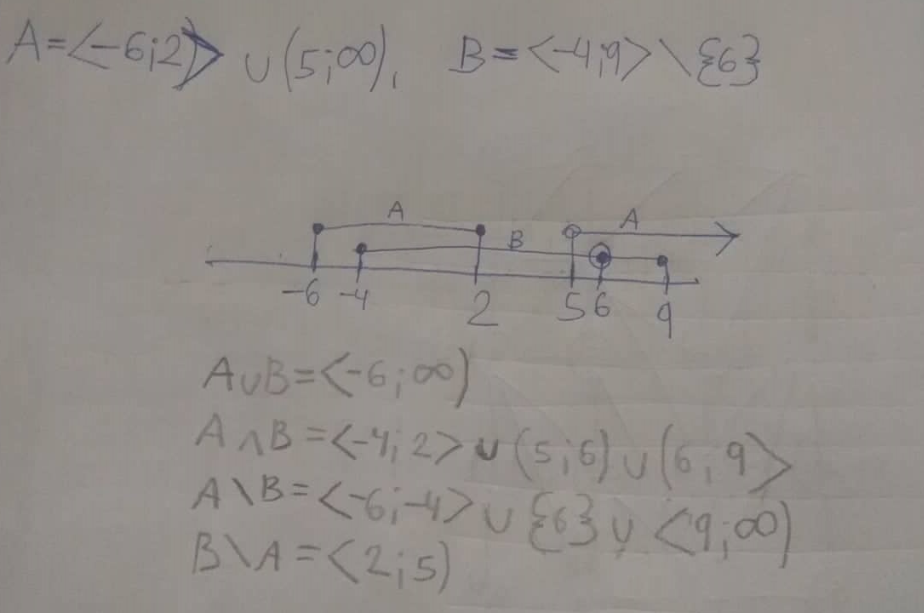 A=<-6;2> ∪ (5;∞), B=<-4;9>\{6}
A A
B
-6 -4 2 5 6 9
A∪B=<-6;∞)
A∩B=<-4;2>∪(5;6)∪(6;9>
A\B=<-6;-4>∪{6}∪<9;∞)
B\A=<2;5)